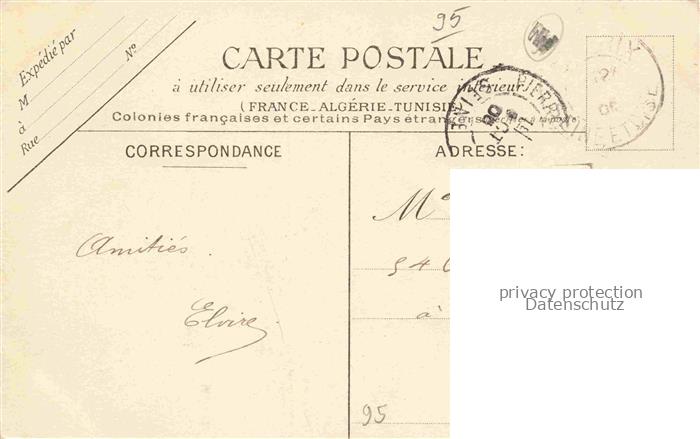 95
Expédié par
N°
M
à
Rue
CARTE POSTALE
à utiliser seulement dans le service intérieur
(FRANCE-ALGÉRIE-TUNISIE
Colonies françaises et certains Pays étrangers
CORRESPONDANCE
ADRESSE:
PIERRE
SEINE
ET OISE
M
54
à
Amitiés.
Elvire
privacy protection
Datenschutz
95